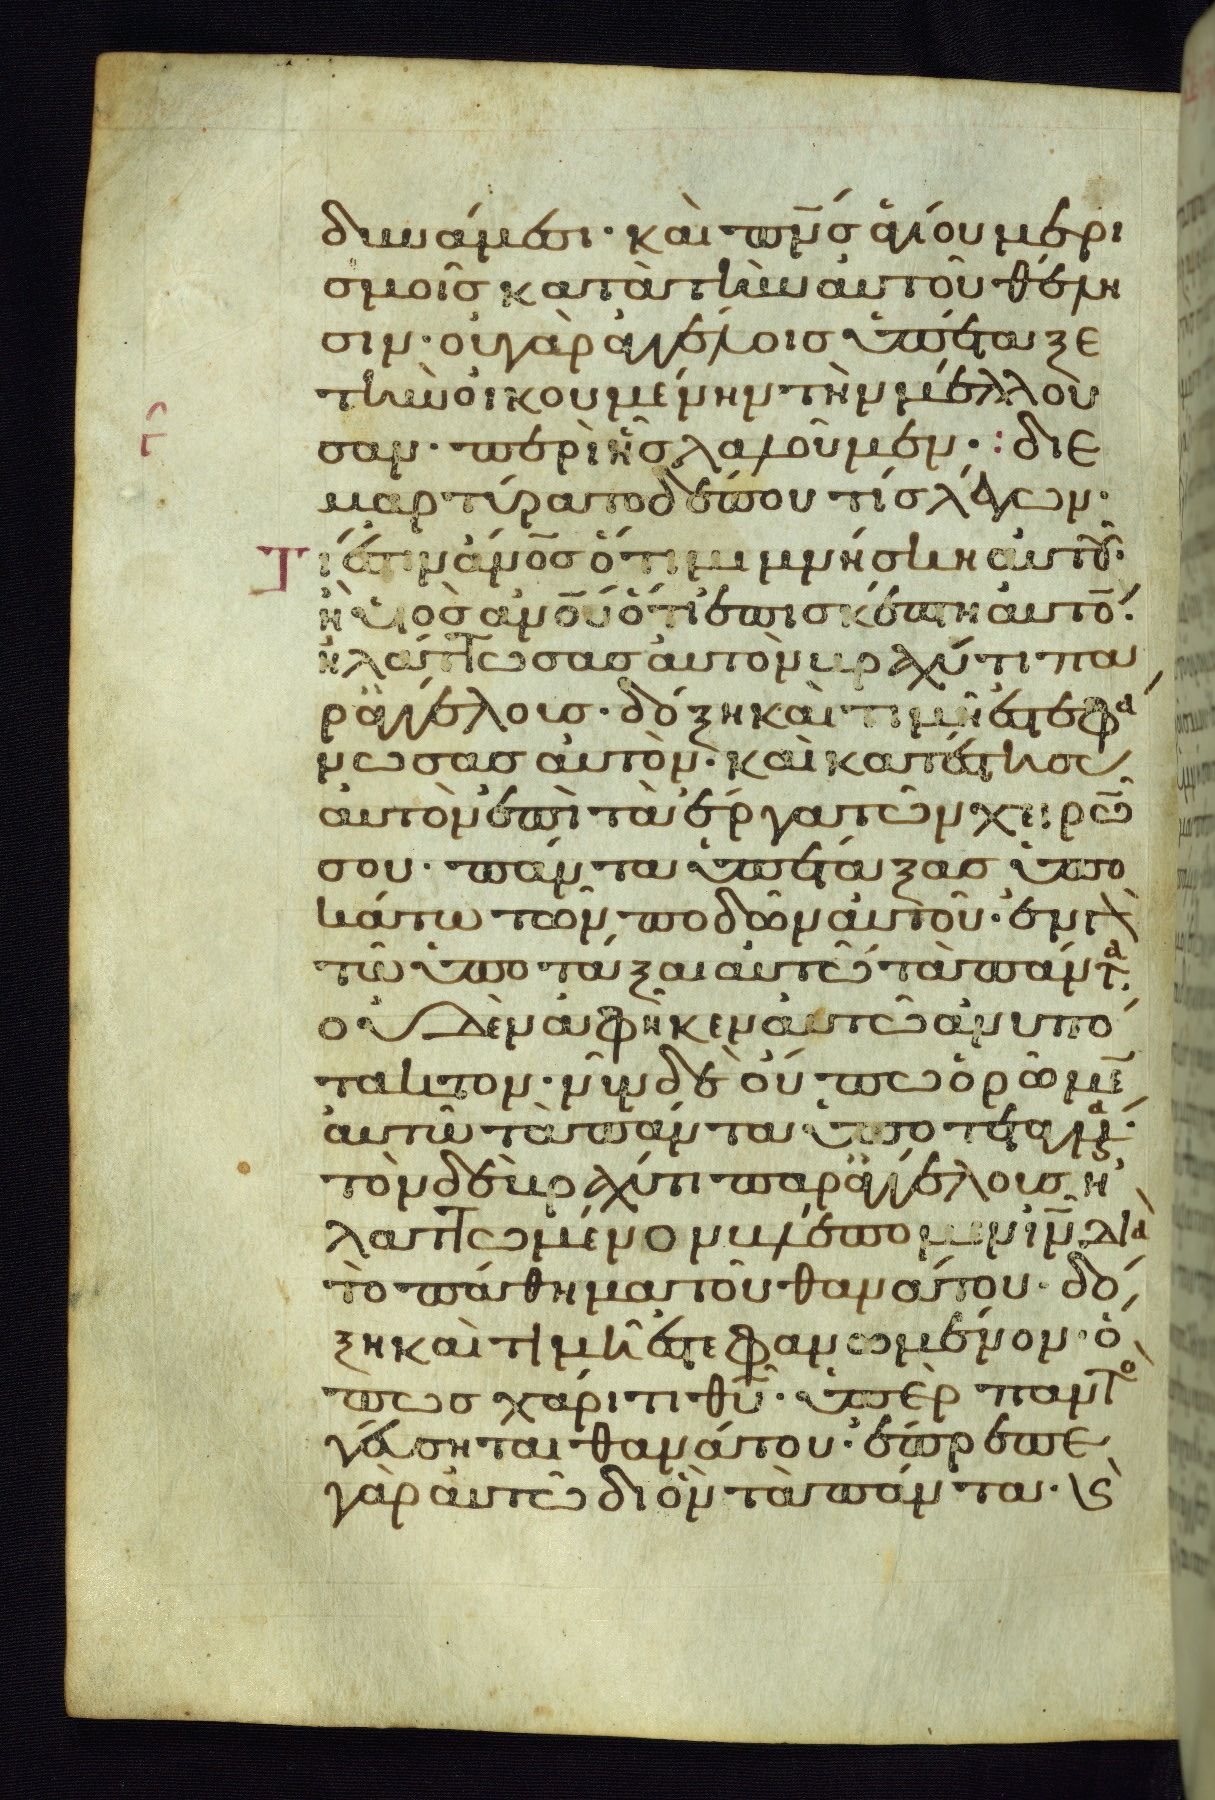 δυνάμεσι· καὶ πν̅ς ἁγίου μερι
σμοῖς κατὰ τὴν αὐτοῦ θέλη
σιν· οὐ γὰρ ἀγγέλοις ὑπέταξε
τὴν οἰκουμένην τὴν μέλλου
σαν· περὶ ἧς λαλοῦμεν·: διε
μαρτύρατο δέ που τίς λέγων·
Τί ἐστιν ἄνο̅ς ὅτι μιμνήσκη αὐτοῦ·
ἢ υἱὸς ἀνο̅υ ὅτι ἐπισκέπτη αὐτό̅·
ἠλάττωσας αὐτὸν βραχύ τι πα
ρ' ἀγγέλους· δόξη καὶ τιμῆ ἐστεφα
νωσας αὐτόν· καὶ κατέστησας
αὐτὸν ἐπὶ τὰ ἔργα τῶν χειρῶ̅
σου· πάντα ὑπέταξας ὑπο
κάτω τῶν ποδῶν αὐτοῦ· ἐν γὰρ
τῶ ὑποτάξαι αὐτῶ τὰ πάντα·
οὐδὲν ἀφῆκεν αὐτῶ ἀνυπό
τακτον· νῦν δὲ οὔπω ὁρῶμε̅
αὐτῶ τὰ πάντα ὑποτεταγμένα·
τὸν δὲ βραχύ τι παρ' ἀγγέλους ἠ
λαττωμένον βλέπομεν ιν̅ διὰ
τὸ πάθημα τοῦ θανάτου· δό
ξη καὶ τιμῆ ἐστεφανωμένον· ὅ
πως χάριτι θυ̅· ὑπὲρ παντὸς
γεύσηται θανάτου· ἔπρεπε
γὰρ αὐτῶ δι' ὃν τὰ πάντα· ϗ